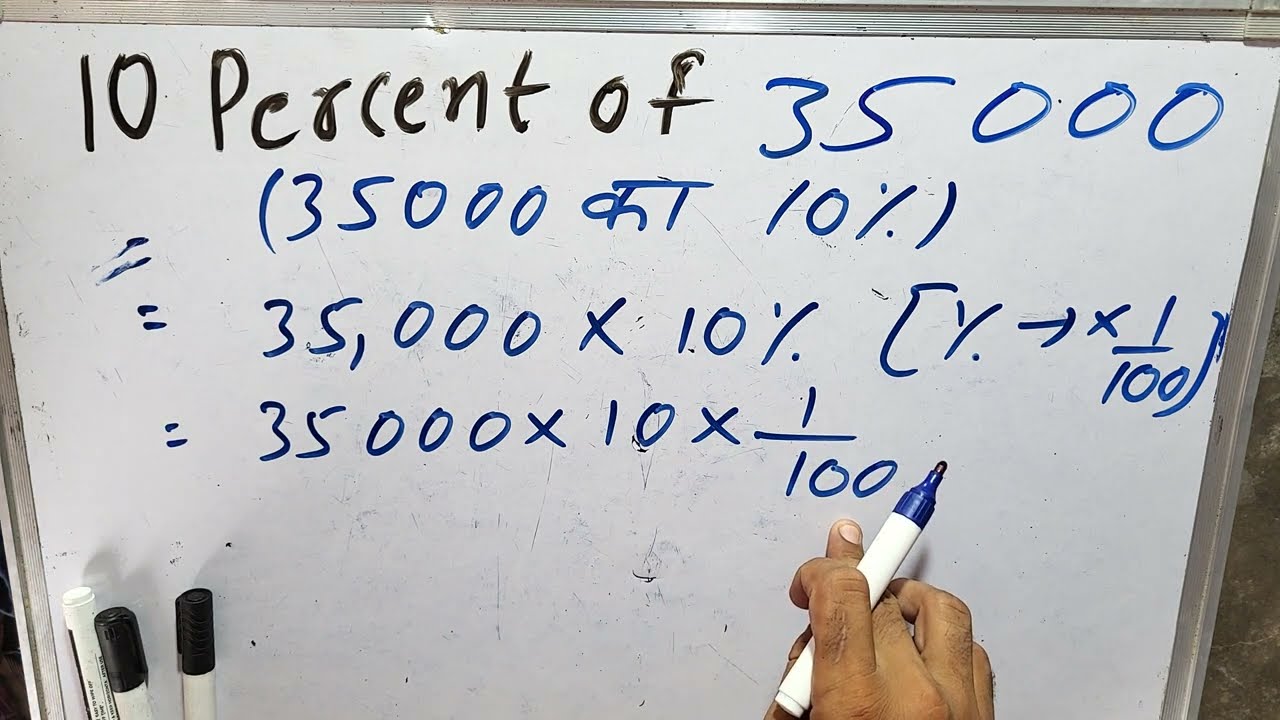 10 Percent of 35000
(35000 का 10%)
= 35,000 × 10% [% → × 1/100]
= 35000 × 10 × 1/100